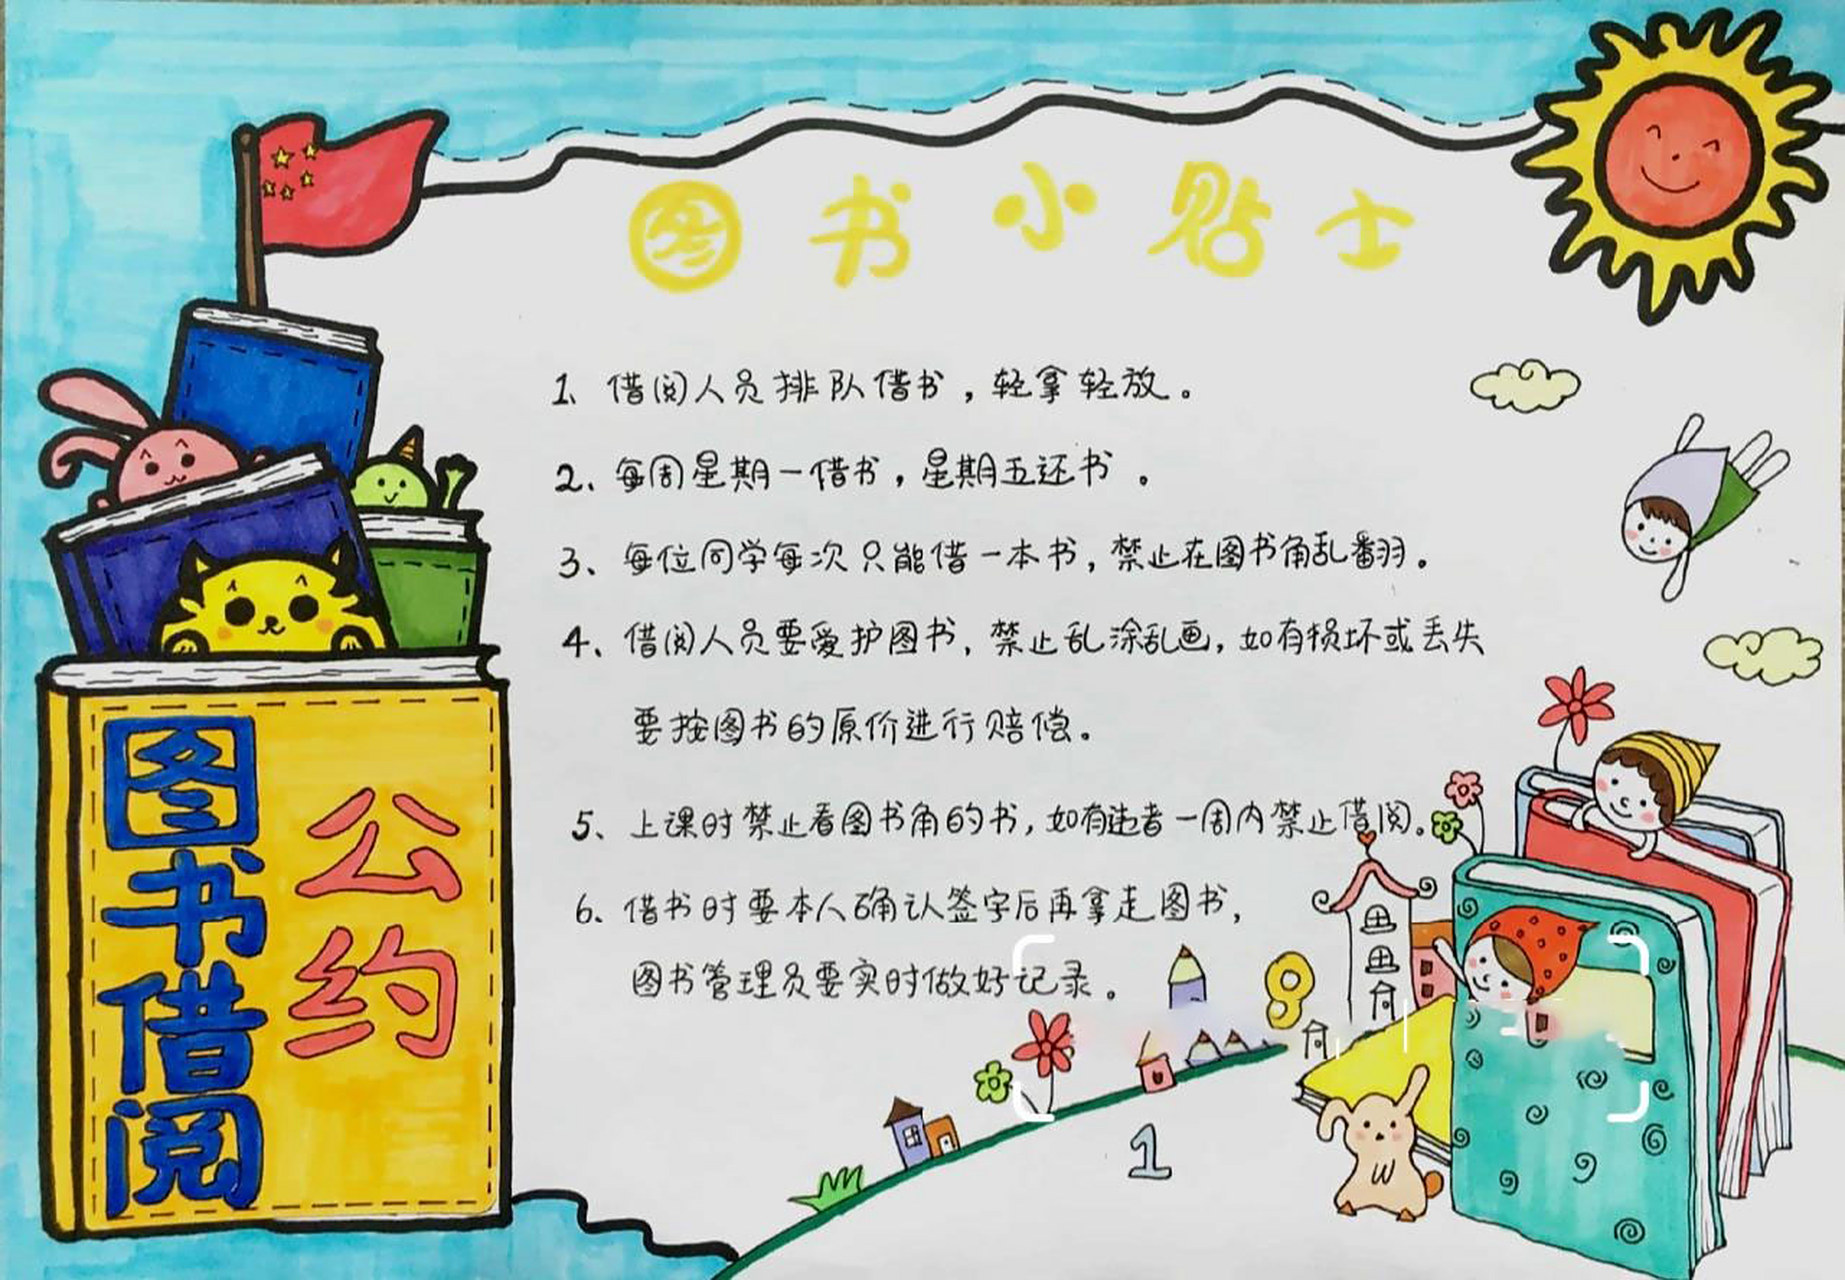 图书小贴士
1、借阅人员排队借书，轻拿轻放。
2、每周星期一借书，星期五还书。
3、每位同学每次只能借一本书，禁止在图书角乱翻。
4、借阅人员要爱护图书，禁止乱涂乱画，如有损坏或丢失
要按图书的原价进行赔偿。
5、上课时禁止看图书角的书，如有违者一周内禁止借阅。
6、借书时要本人确认签字后再拿走图书，
图书管理员要实时做好记录。
图书借阅
公约
1